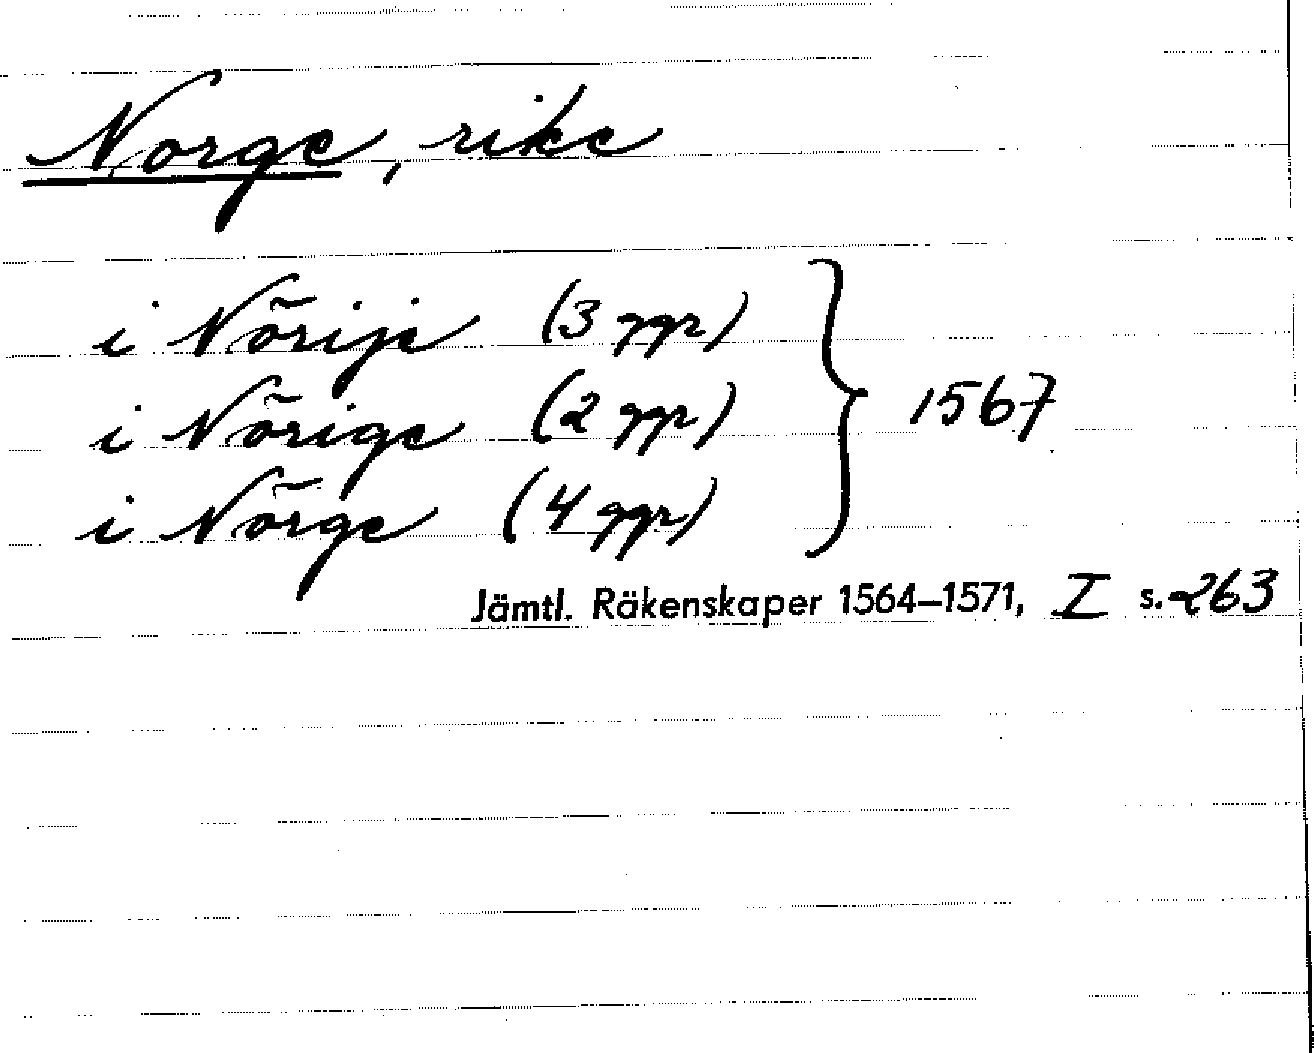 Norge, rike
i Nõrije (3 ggr)
i Nõrige (2 ggr) } 1567
i Nõrge (4 ggr)
Jämtl. Räkenskaper 1564–1571, I s. 263